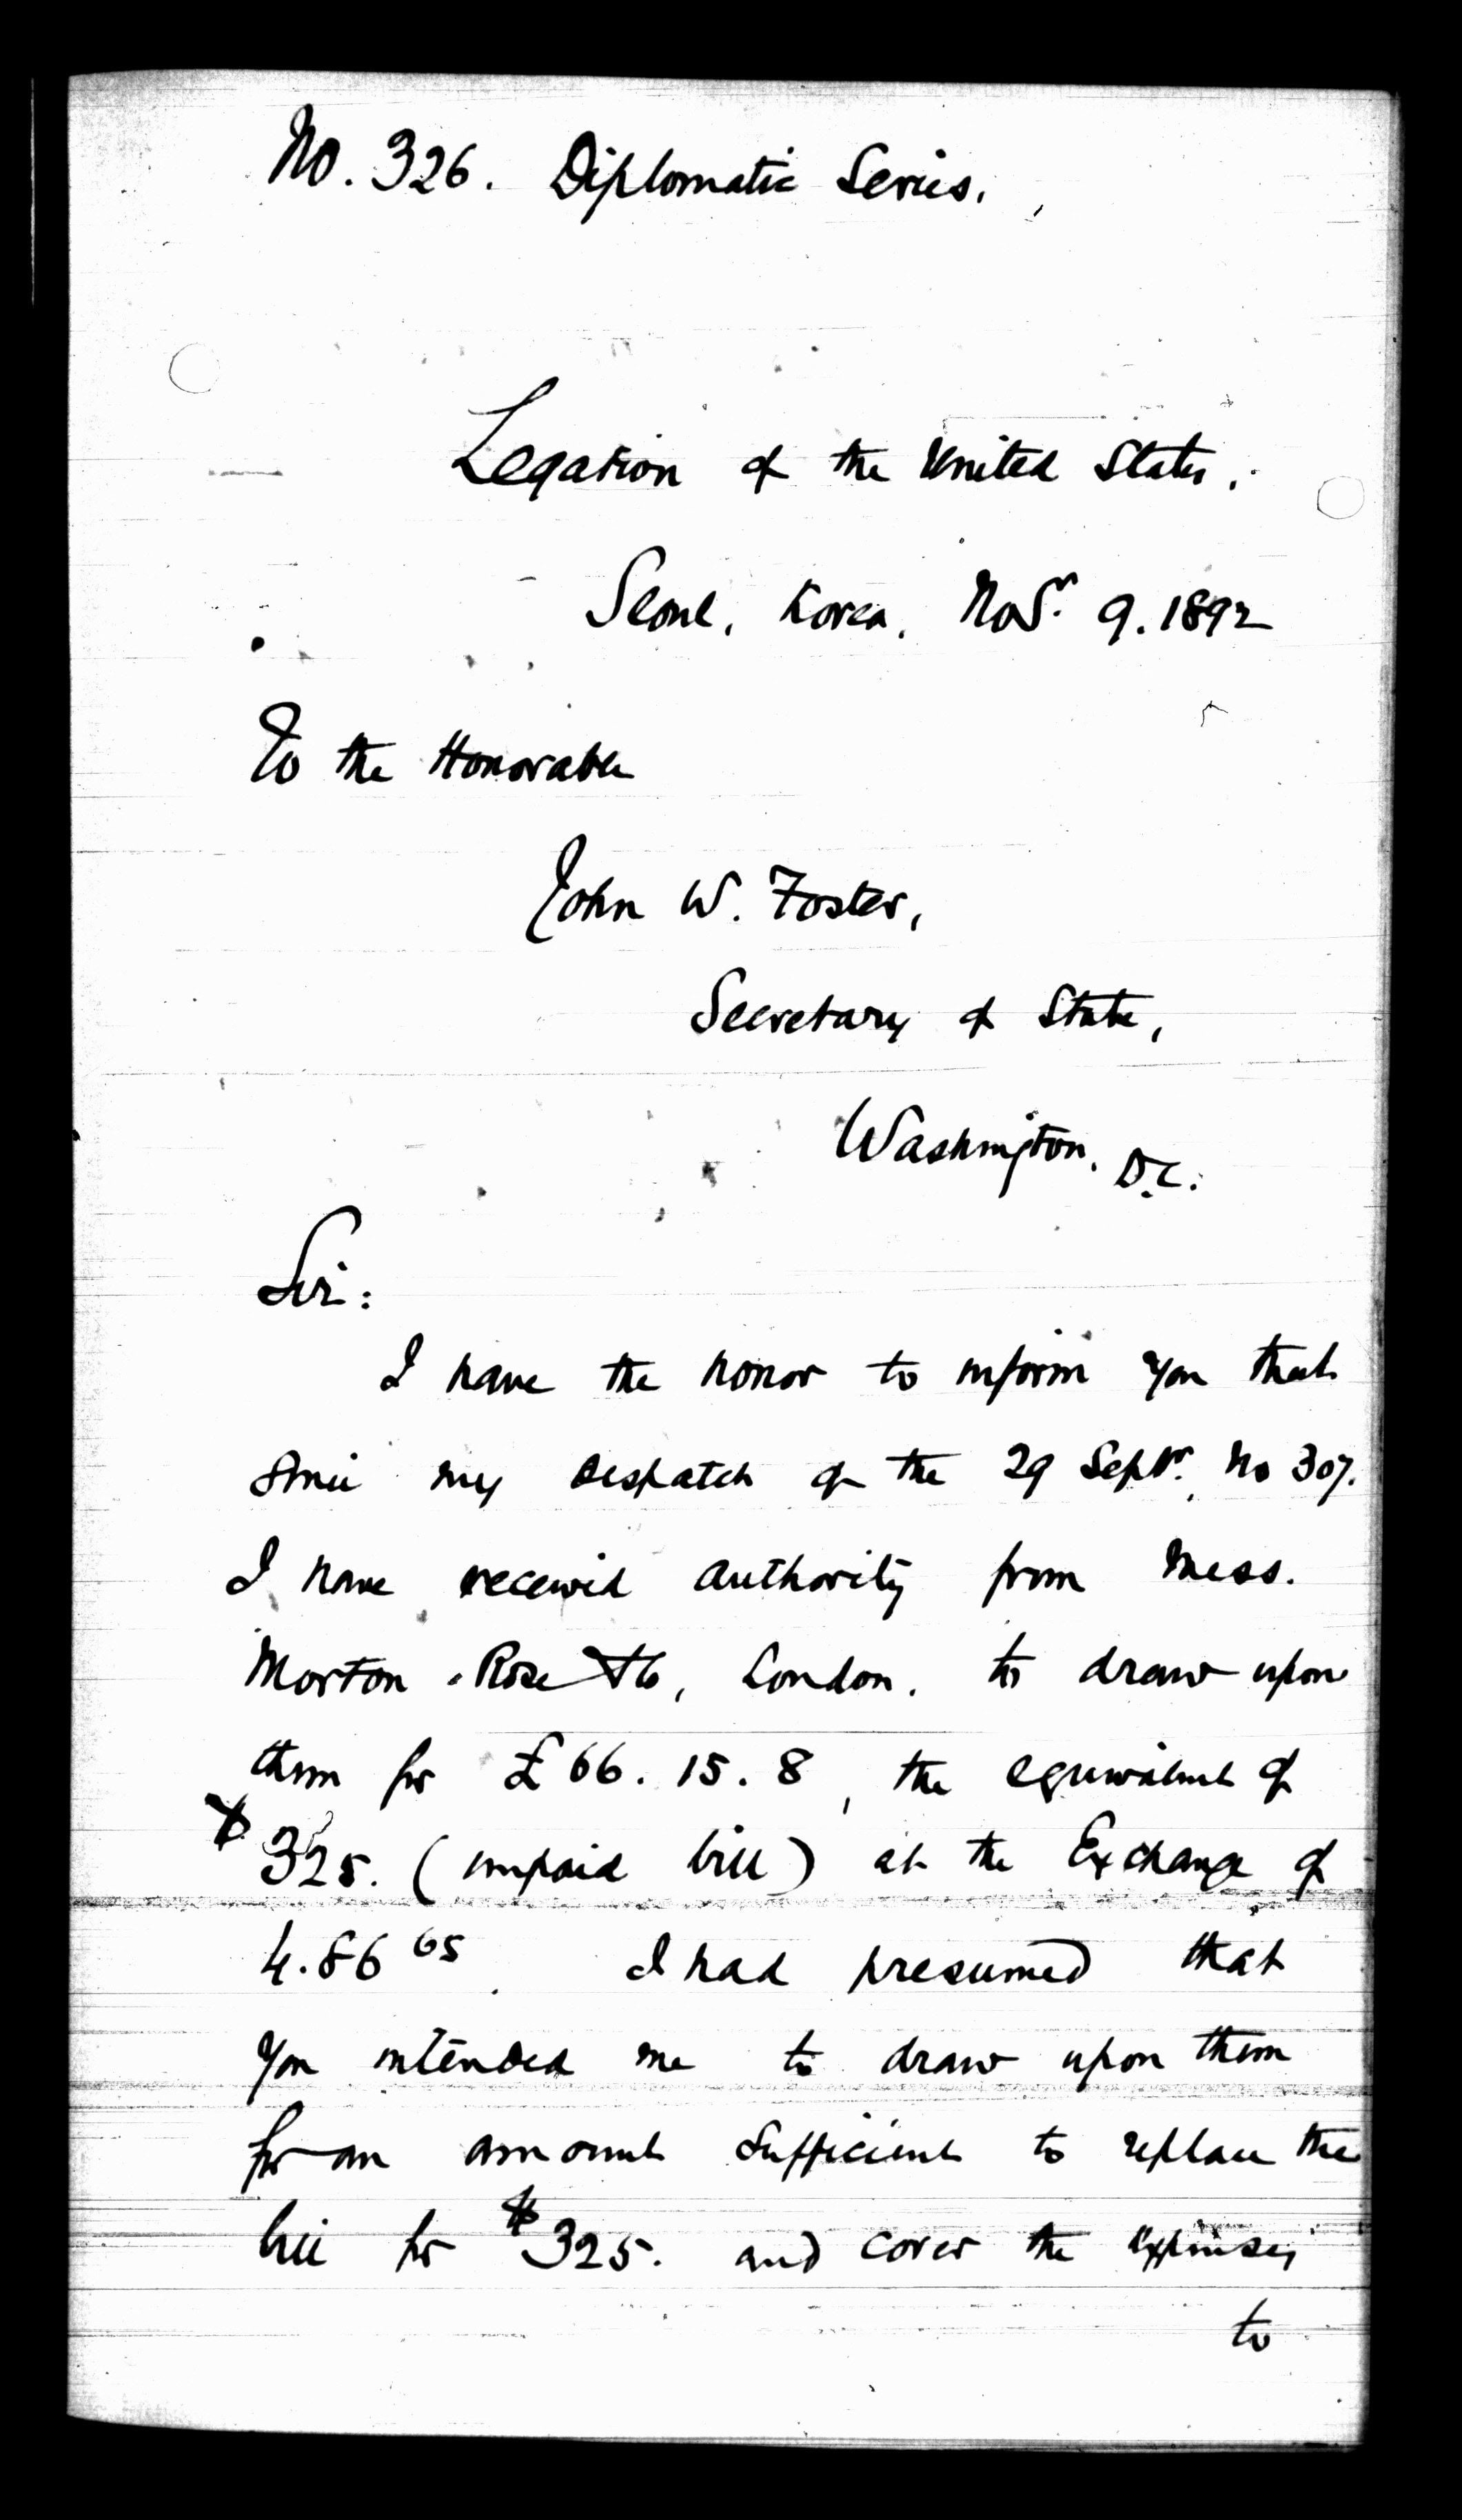 No. 326. Diplomatic Series.
Legation of the United States.
Seoul, Korea, Novr. 9. 1892
To the Honorable
John W. Foster,
Secretary of State,
Washington, D.C.
Sir:
I have the honor to inform you that
since my despatch of the 29 Septr. No 307.
I have received authority from Mess.
Morton Rose & Co, London. to draw upon
them for £66. 15. 8, the equivalent of
$325. (unpaid bill) at the Exchange of
4.86 65. I had presumed that
you intended me to draw upon them
for an amount sufficient to replace the
bill for $325. and cover the expenses
to